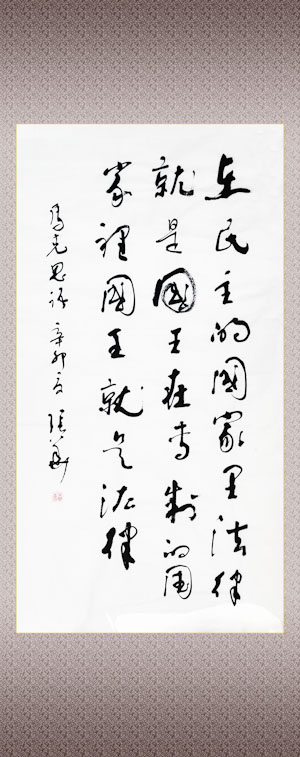 在民主的國家里法律
就是國王在专制的国
家裡國王就是法律
馬克思語 辛卯夏 張